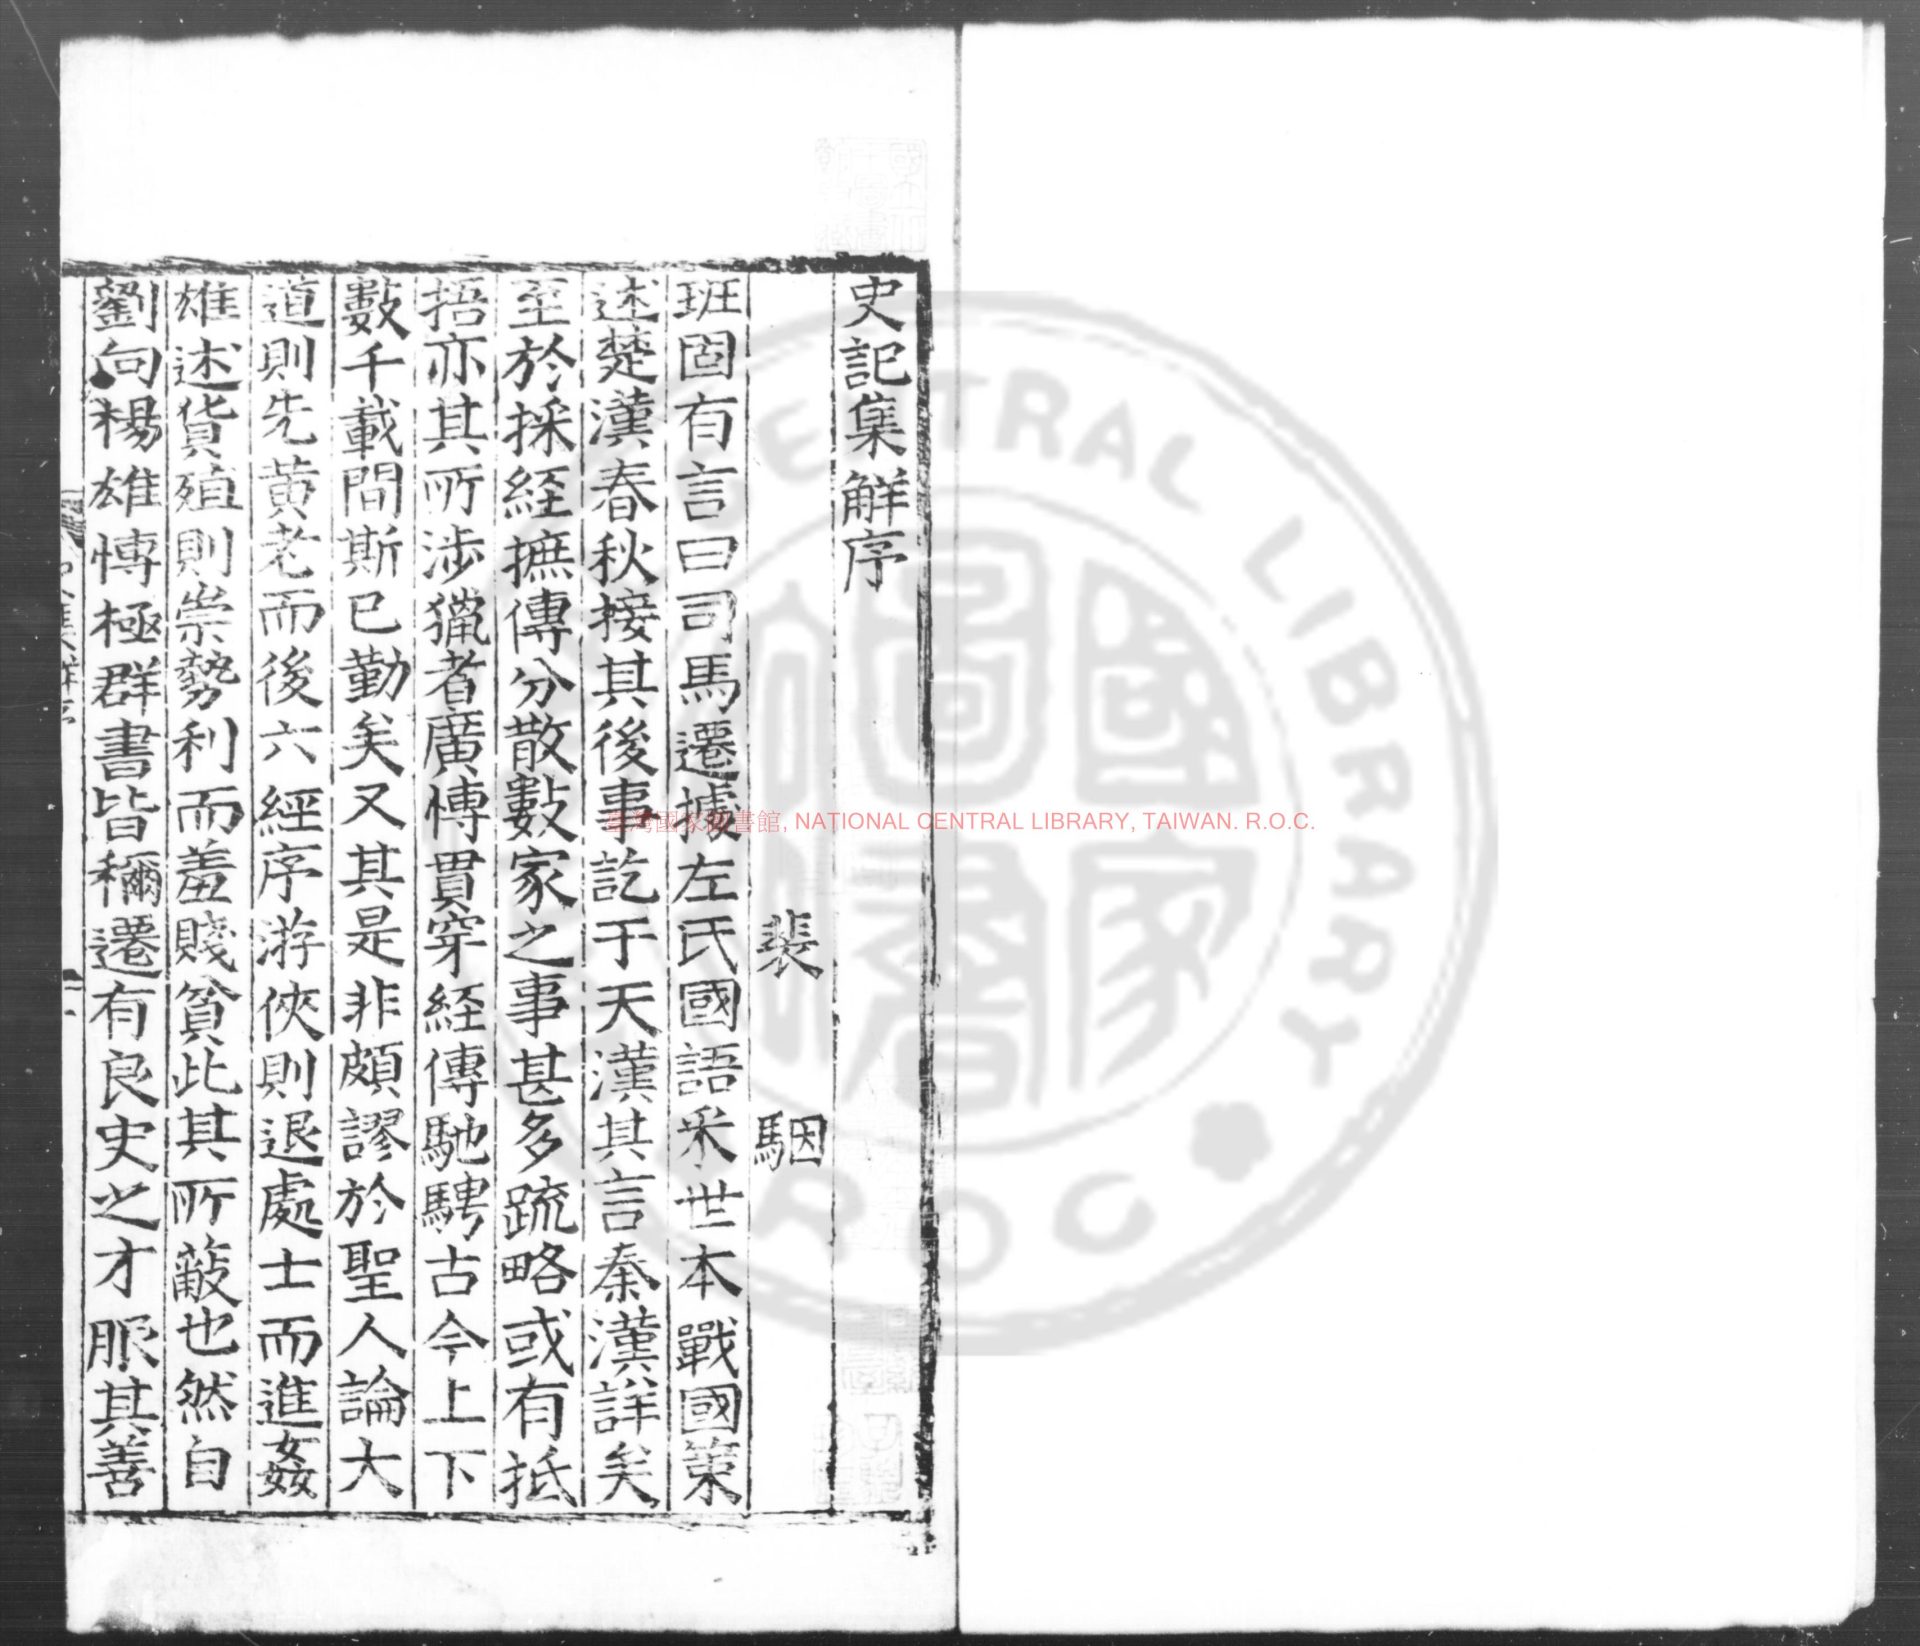 史記集解序
裴駰
班固有言曰司馬遷據左氏國語采世本戰國策
述楚漢春秋接其後事訖于天漢其言秦漢詳矣
至於採經摭傳分散數家之事甚多疏略或有抵
捂亦其所涉獵者廣博貫穿經傳馳騁古今上下
數千載間斯已勤矣又其是非頗謬於聖人論大
道則先黃老而後六經序游俠則退處士而進姦
雄述貨殖則崇勢利而羞賤貧此其所蔽也然自
劉向楊雄博極群書皆稱遷有良史之才服其善
臺灣國家圖書館, NATIONAL CENTRAL LIBRARY, TAIWAN. R.O.C.
CENTRAL LIBRARY
R.O.C
國家圖書